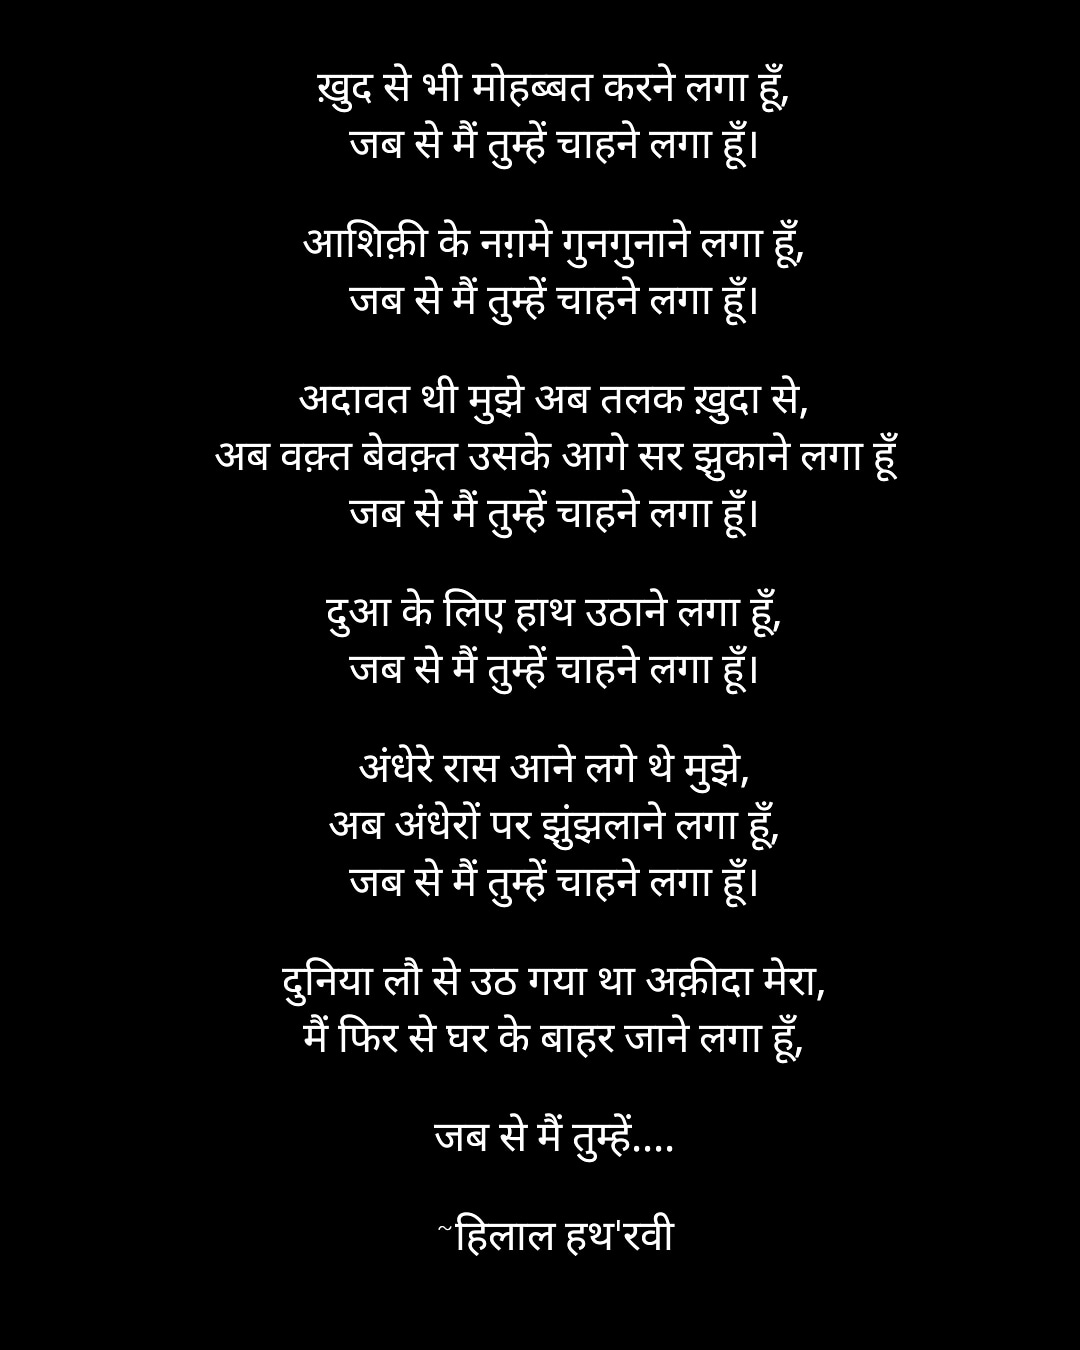 ख़ुद से भी मोहब्बत करने लगा हूँ,
जब से मैं तुम्हें चाहने लगा हूँ।
आशिक़ी के नग़मे गुनगुनाने लगा हूँ,
जब से मैं तुम्हें चाहने लगा हूँ।
अदावत थी मुझे अब तलक ख़ुदा से,
अब वक़्त बेवक़्त उसके आगे सर झुकाने लगा हूँ
जब से मैं तुम्हें चाहने लगा हूँ।
दुआ के लिए हाथ उठाने लगा हूँ,
जब से मैं तुम्हें चाहने लगा हूँ।
अंधेरे रास आने लगे थे मुझे,
अब अंधेरों पर झुंझलाने लगा हूँ,
जब से मैं तुम्हें चाहने लगा हूँ।
दुनिया लौ से उठ गया था अक़ीदा मेरा,
मैं फिर से घर के बाहर जाने लगा हूँ,
जब से मैं तुम्हें....
~हिलाल हथ'रवी